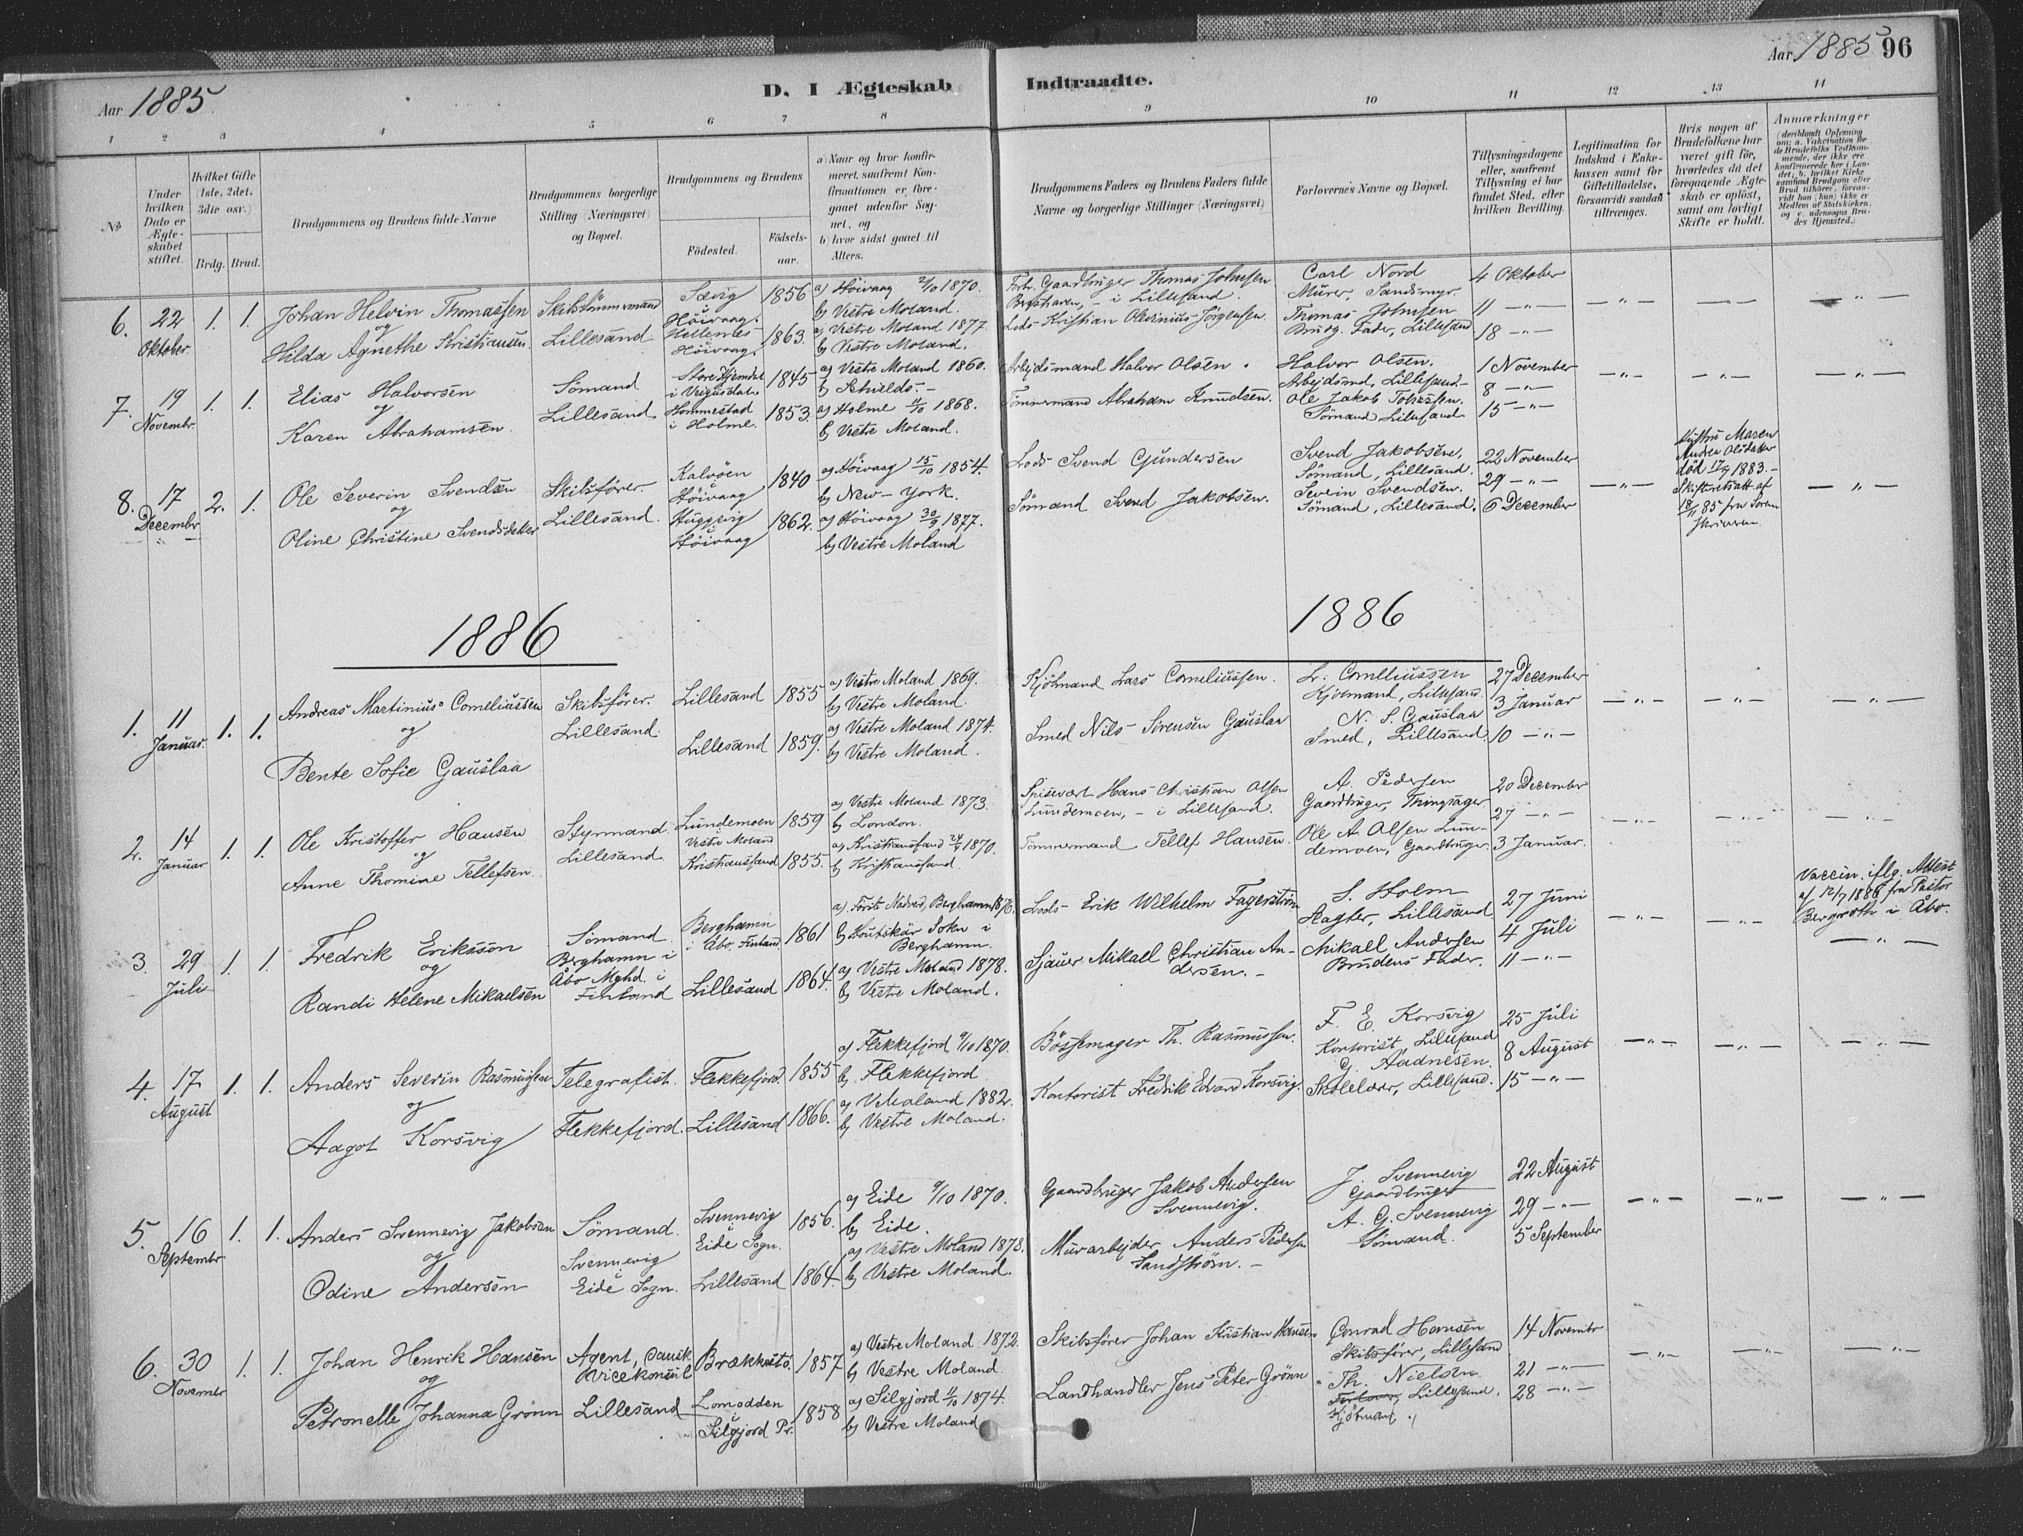 Aar 1885.
D. I Ægteskab
Indtraadte.
Aar 1885 96
1 2 3 4 5 6 7 8 9 10 11 12 13 14
No
Under hvilken Dato er Ægteskabet stiftet.
Hvilket Gifte (1ste, 2det, 3die osv.)
Brdg. Brud.
Brudgommens og Brudens fulde Navne
Brudgommens borgerlige Stilling (Næringsvei) og Bopæl.
Brudgommens og Brudens
Fødested.
Fødselsaar.
a) Naar og hvor konfirmeret, saafremt Konfirmationen er foregaaet udenfor Sognet, og
b) hvor sidst gaaet til Alters.
Brudgommens Faders og Brudens Faders fulde Navne og borgerlige Stillinger (Næringsvei)
Forlovernes Navne og Bopæl.
Tillysningsdagene eller, saafremt Tillysning ei har fundet Sted, efter hvilken Bevilling.
Legitimation for Indskud i Enkekassen samt for Giftetilladelse, forsaavidt saadan tiltrænges.
Hvis nogen af Brudefolkene har været gift før, hvorledes da det foregaaende Ægteskab er opløst, samt om lovligt Skifte er holdt.
Anmærkninger
(deriblandt Oplysning om: a. Vakcination for de Brudefolks Vedkommende, der ikke ere konfirmerede her i Landet, b. hvilket Kirkesamfund Brudgom eller Brud tilhører, forsaavidt han (hun) ikke er Medlem af Statskirken, og c. udensogns Brudes Hjemsted.)
6. 22 Oktober. 1. 1.
Johan Helvin Thomassen
og
Hilda Agnethe Kristiansen
Skibstømmermand
Lillesand
Sævig
Høivaag. 1856
Hellenes
Høivaag. 1863.
a) Høivaag 2/10 1870.
b) Vestre Moland.
a) Vestre Moland 1877
b) Vestre Moland.
Forh. Gaardbruger Thomas Johnsen
i Lillesand.
Lods Kristian Olavinius Jørgensen
Carl Nord
Murer, Sandsmyr.
Thomas Johnsen
Brudg. Fader, Lillesand
4 Oktober
11 - " -
18 - " -
7. 19 Novembr. 1. 1.
Elias Halvorsen
og
Karen Abrahamsen.
Sömand
Lillesand
Store Hjemdal
i Veigusdal. 1845
Hommestad
i Holme. 1853.
a) Vestre Moland 1860.
b) Ithields -
a) Holme 11/10 1868.
b) Vestre Moland.
Arbejdsmand Halvor Olsen.
Tömmermand Abraham Knudsen.
Halvor Olsen.
Arbejdsmd, Lillesand.
Ole Jakob Johnsen.
Sömand Lillesand
1 November
8 - " -
15 - " -
8. 17 Decembr 2. 1.
Ole Severin Svendsen
og
Oline Christine Svendsdatter
Skibsfører.
Lillesand.
Kalvöen
i
Höivaag 1840
Huggevig
i
Höivaag 1862.
a) Höivaag 15/10 1854.
b) New-York.
a) Höivaag 30/9 1877.
b) Vestre Moland
Lods Svend Gundersen
Sömand Svend Jakobsen.
Svend Jakobsen,
Sömand, Lillesand.
Severin Svendsen.
Sömand, Lillesand.
22 November
29 - " -
6 December
Hustru Maren
Andrea Olsdatter
död 17/9 1883. -
Skifteretsatt af
18/11 85 fra Soren
skriveren.
1886
1886
1. 11 Januar. 1. 1.
Andreas Martinius Corneliussen
og
Bente Sofie Gauslaa
Skibsfører.
Lillesand.
Lillesand 1855
Lillesand 1859.
a) Vestre Moland 1869.
b) Vestre Moland.
a) Vestre Moland 1874.
b) Vestre Moland.
Kjöbmand Lars Corneliussen.
Smed Nils Sörensen Gauslaa
L. Corneliussen
Kjöbmand, Lillesand.
N. S. Gauslaa
Smed, Lillesand.
27 December
3 Januar
10 - " -
2. 14 Januar 1. 1.
Ole Kristoffer Hansen
og
Anne Thomine Tellefsen.
Styrmand.
Lillesand.
Lundemoen
Vestre Moland 1859
Kristianssand 1855.
a) Vestre Moland 1873.
b) London.
a) Kristianssand 24/4 1870.
b) Kristianssand.
Spisevært Hans Christian Olsen
Lundemoen, - i Lillesand.
Tömmermand Tellef Hansen.
A. Pedersen
Gaardbruger, Tingsager
Ole A. Olsen Lundemoen, Gaardbruger.
20 December
27 - " -
3 Januar.
3. 29 Juli 1. 1.
Fredrik Eriksson
og
Randi Helene Mikaelsen
Sömand.
Berghamn i
Åbo Mghd. i
Finland
Berghamn
i Åbo, Finland 1861
Lillesand 1864.
a) Förste Nadvd, Berghamn 1876.
b) Houtskär Sokn i
Berghamn.
a) Vestre Moland 1878.
b) Vestre Moland.
Lods Erik Wilhelm Fagerström
Sjauer Mikael Christian Andersen. -
S. Holm
Lillesand
Mikael Andersen
Brudens Fader.
27 Juni
4 Juli
11 - " -
Vaccin. iflg. Attest
af 12/7 1886 fra Pastor
Bergroth i Åbo.
4. 17 August 1. 1.
Anders Severin Rasmussen
og
Aagot Korsvig
Telegrafist.
Flekkefjord.
Flekkefjord. 1855
Lillesand 1866.
a) Flekkefjord 9/10 1870.
b) Flekkefjord
a) V. Moland 1882.
b) Vestre Moland.
Bössemager Th. Rasmussen.
Kontorist Fredrik Edvard Korsvig.
F. E. Korsvig
Kontorist, Lillesand
G. Aadnesen.
Skolelærer, Lillesand.
25 Juli
8 August
15 - " -
5. 16 Septembr 1. 1.
Anders Svennevig Jakobsen
og
Odine Andersen
Sömand.
Svennevig
i
Eide Sogn.
Svennevig
i
Eide Sogn. 1856.
Lillesand 1864.
a) Eide 9/10 1870.
b) Eide.
a) Vestre Moland 1878.
b) Vestre Moland.
Gaardbruger Jakob Andersen
Svennevig.
Murarbejder Anders Pedersen
Sandström. -
J. Svennevig
Gaardbruger
A. G. Svennevig
Sömand.
22 August
29 - " -
5 September
6. 30 Novembr 1. 1.
Johan Henrik Hansen
og
Petronelle Johanna Grönn
Agent, Dansk
Vicekonsul
Lillesand
Brækkestö. 1857
Lomodden
i
Silgjord Pr. 1858
a) Vestre Moland 1872.
b) Vestre Moland.
a) Silgjord 11/10 1874.
b) Vestre Moland.
Skibsfører Johan Kristian Hansen
Landhandler Jens Peter Grönn
Conrad Hansen
Skibsfører, Lillesand
Th. Nielsen
Lillesand.
Kjöbmand
14 Novembr
21 - " -
28 - " -